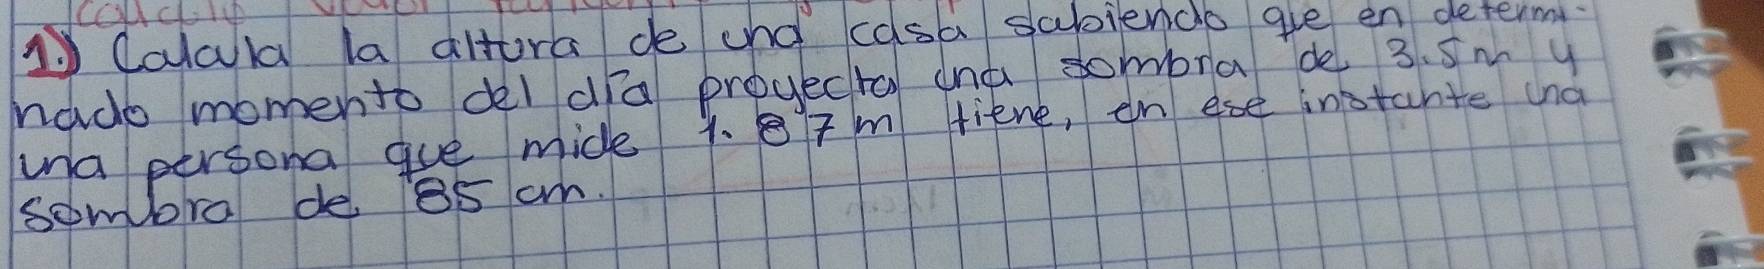 1.) Calcula la altura de una casa sabiendo que en determi-
nado momento del día proyecta una sombra de 3.5m y
una persona que mide 1.87m tiene, en ese instante una
sombra de 85 cm.